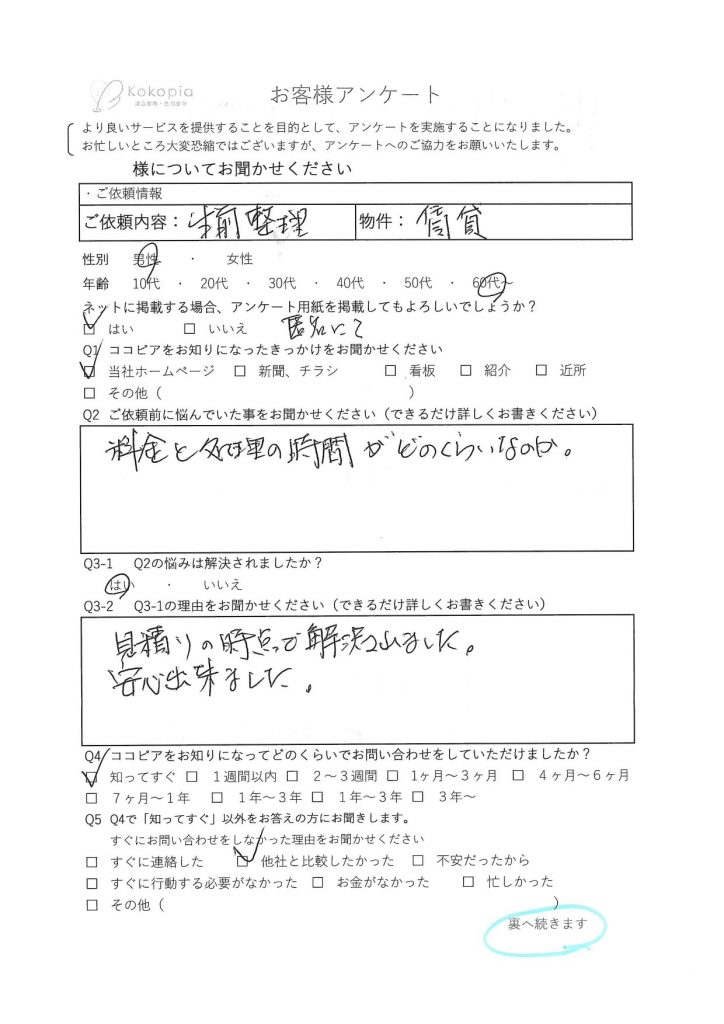 Kokopia
遺品整理・生前整理
お客様アンケート
より良いサービスを提供することを目的として、アンケートを実施することになりました。
お忙しいところ大変恐縮ではございますが、アンケートへのご協力をお願いいたします。
様についてお聞かせください
・ご依頼情報
ご依頼内容：生前整理 物件：賃貸
性別 男性 ・ 女性
年齢 10代 ・ 20代 ・ 30代 ・ 40代 ・ 50代 ・ 60代～
ネットに掲載する場合、アンケート用紙を掲載してもよろしいでしょうか？
☑ はい □ いいえ 匿名にて
Q1 ココピアをお知りになったきっかけをお聞かせください
☑ 当社ホームページ □ 新聞、チラシ □ 看板 □ 紹介 □ 近所
□ その他（ ）
Q2 ご依頼前に悩んでいた事をお聞かせください（できるだけ詳しくお書きください）
料金と処理の時間がどのくらいなのか。
Q3-1 Q2の悩みは解決されましたか？
はい ・ いいえ
Q3-2 Q3-1の理由をお聞かせください（できるだけ詳しくお書きください）
見積りの時点で解決しました。
安心出来ました。
Q4 ココピアをお知りになってどのくらいでお問い合わせをしていただけましたか？
☑ 知ってすぐ □ 1週間以内 □ 2～3週間 □ 1ヶ月～3ヶ月 □ 4ヶ月～6ヶ月
□ 7ヶ月～1年 □ 1年～3年 □ 1年～3年 □ 3年～
Q5 Q4で「知ってすぐ」以外をお答えの方にお聞きします。
すぐにお問い合わせをしなかった理由をお聞かせください
□ すぐに連絡した ☑ 他社と比較したかった □ 不安だったから
□ すぐに行動する必要がなかった □ お金がなかった □ 忙しかった
□ その他（ ）
裏へ続きます